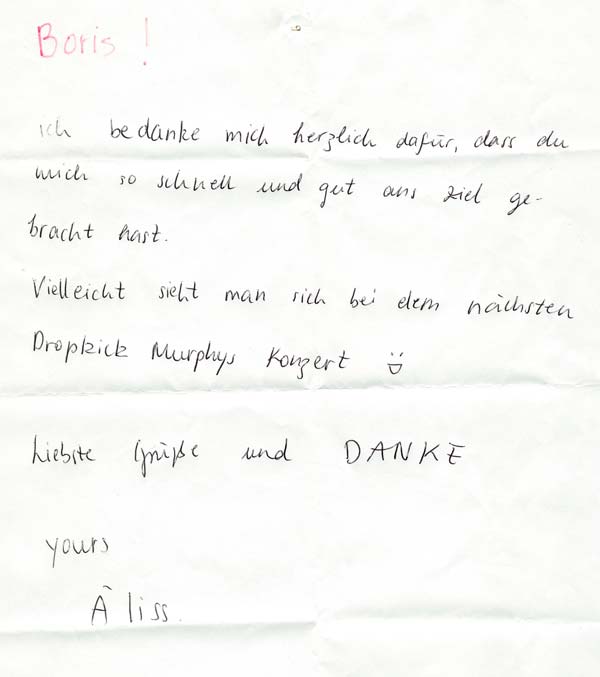 Boris!
ich bedanke mich herzlich dafür, dass du
mich so schnell und gut ans Ziel ge-
bracht hast.
Vielleicht sieht man sich bei dem nächsten
Dropkick Murphys Konzert
Liebste Grüße und DANKE
yours
Àliss.